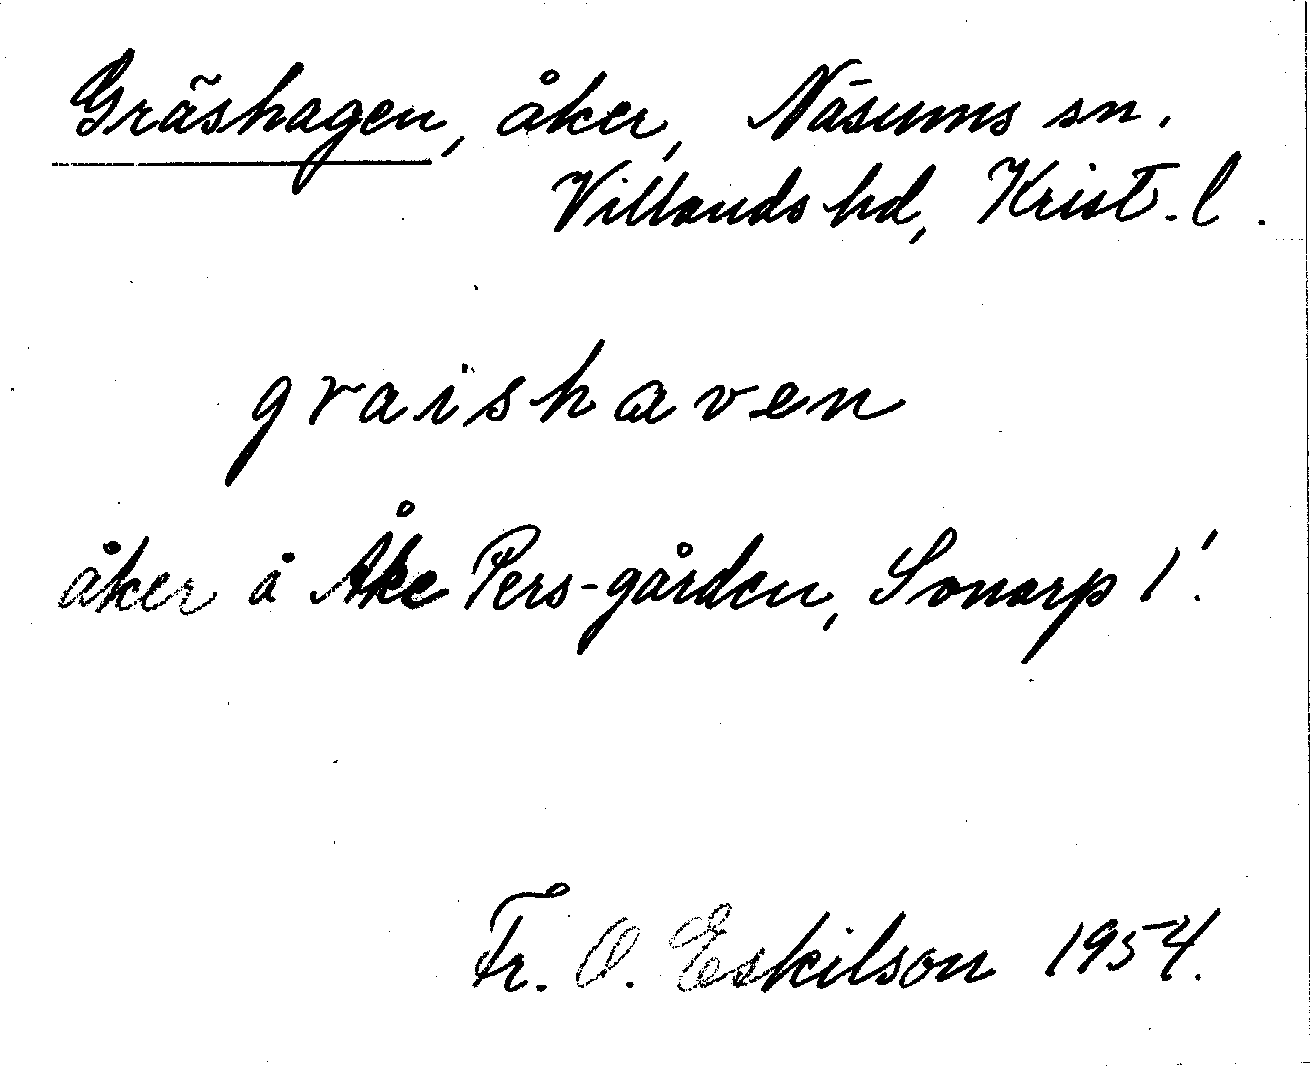 Gräshagen, åker, Näsums sn.
Villands hd, Krist. l.
graishaven
åker å Åke Pers-gården, Sonarp 1!
Fr. O. Eskilson 1954.